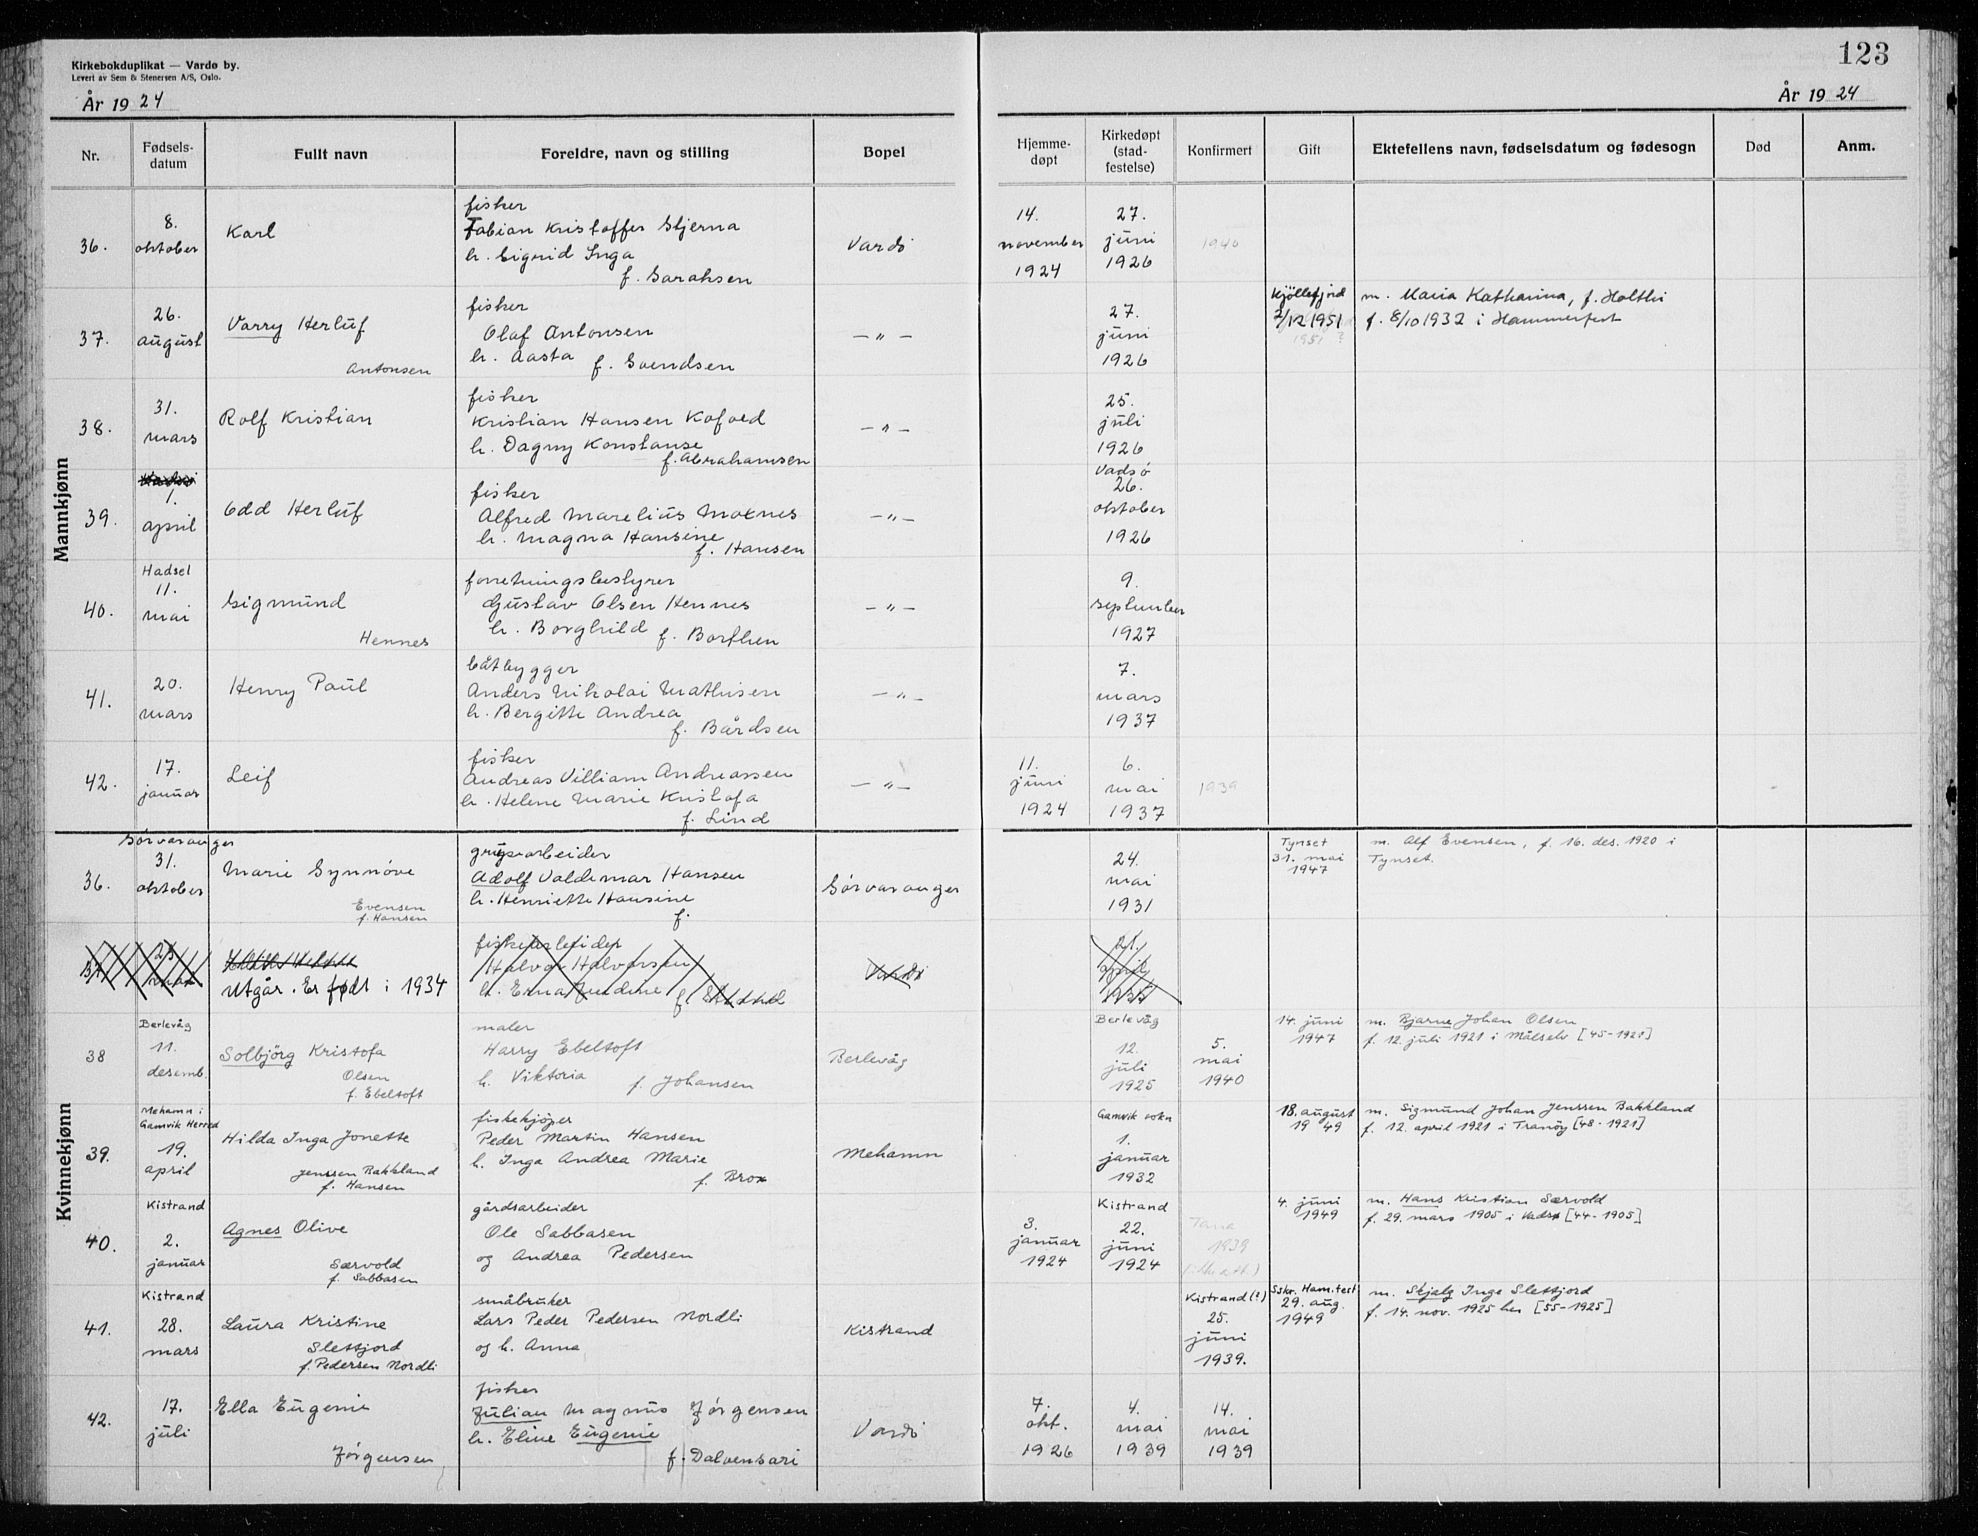 Kirkebokduplikat — Vardø by.
Levert av Sem & Stenersen A/S, Oslo.
År 1924
123
År 1924
Nr.
Fødsels-
datum
Fullt navn
Foreldre, navn og stilling
Bopel
Hjemme-
døpt
Kirkedøpt
(stad-
festelse)
Konfirmert
Gift
Ektefellens navn, fødselsdatum og fødesogn
Død
Anm.
Mannkjønn
36.
8.
oktober
Karl
fisker
Fabian Kristoffer Stjerna
h. Sigrid Inga
f. Saraksen
Vardö
14.
november
1924
27.
juni
1926
1940
37.
26.
august
Varry Herluf
Antonsen
fisker
Olaf Antonsen
h. Aasta f. Svendsen
— " —
27.
juni
1926
Kjöllefjord
2/12 1951
1951 ?
m. Maria Katharina, f. Holthi
f. 8/10 1932 i Hammerfest
38.
31.
mars
Rolf Kristian
fisker
Kristian Hansen Kofoed
h. Dagny Konstanse
f. Abrahamsen
— " —
25.
juli
1926
39.
1.
april
Odd Herluf
fisker
Alfred Marelius Moxnes
h. Magna Hansine
f. Hansen
— " —
Vadsö
26.
oktober
1926
40.
Hadsel
11.
mai
Sigmund
Hennes
forretningsbestyrer
Gustav Olsen Hennes
h. Borghild f. Borthen
— " —
9.
september
1927
41.
20.
mars
Henry Paul
båtbygger
Anders Nikolai Mathisen
h. Bergitte Andrea
f. Bårdsen
— " —
7.
mars
1937
42.
17.
januar
Leif
fisker
Andreas Villiam Andreassen
h. Helene Marie Kristofa
f. Lind
— " —
11.
juni
1924
6.
mai
1937
1939
Kvinnekjønn
36.
Sörvaranger
31.
oktober
Marie Synnöve
Evensen
f. Hansen
grubearbeider
Adolf Valdemar Hansen
h. Henriette Hansine
f.
Sörvaranger
24.
mai
1931
Tynset
31. mai
1947
m. Alf Evensen, f. 16. des. 1920 i
Tynset.
37
23
Utgår. Er født i 1934
fiskearbeider
Halvor Halvorsen
h. Erna
f.
Vardö
21.
april
1935
38
Berlevåg
11.
desemb.
Solbjörg Kristofa
Olsen
f. Ebeltoft
maler
Harry Ebeltoft
h. Viktoria f. Johansen
Berlevåg
Berlevåg
12.
juli
1925
5.
mai
1940
14. juni
1947
m. Bjarne Johan Olsen
f. 12. juli 1921 i Målselv [45-1921]
39.
Mehamn i
Gamvik Herred
19.
april
Hilda Inga Jonette
Jenssen Bakkland
f. Hansen
fiskekjøper
Peder Martin Hansen
h. Inga Andrea Marie
f. Brox
Mehamn
Gamvik sokn
1.
januar
1932
18. august
1949
m. Sigmund Johan Jenssen Bakkland
f. 12. april 1921 i Tranöy [48-1921]
40.
Kistrand
2.
januar
Agnes Olive
Særvold
f. Sabbasen
gårdsarbeider
Ole Sabbasen
og Andrea Pedersen
3.
januar
1924
Kistrand
22.
juni
1924
Tana
1939
4. juni
1949
m. Hans Kristian Særvold
f. 29. mars 1905 i Vadsø [44-1905]
41.
Kistrand
28.
mars
Laura Kristine
Slettjord
f. Pedersen Nordli
småbruker
Lars Peder Pedersen Nordli
og h. Anna
Kistrand
Kistrand (?)
25.
juni
1939.
Sskr. Ham.fest
29. aug.
1949
m. Skjalg Inge Slettjord
f. 14. nov. 1925 her [55-1925]
42.
17.
juli
Ella Eugenie
Jörgensen
fisker
Julian Magnus Jörgensen
h. Eline Eugenie
f. Dalvensari
Vardö
7.
okt.
1926
4.
mai
1939
14.
mai
1939